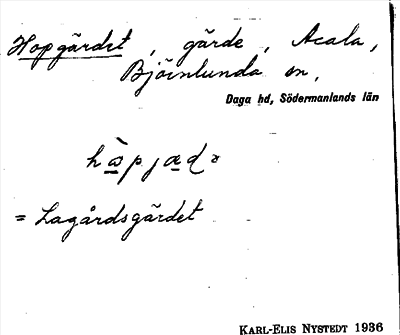 Hopgärdet, gärde, Acala,
Björnlunda sn,
Daga hd, Södermanlands län
hòpjad
= Lagårdsgärdet
KARL-ELIS NYSTEDT 1936